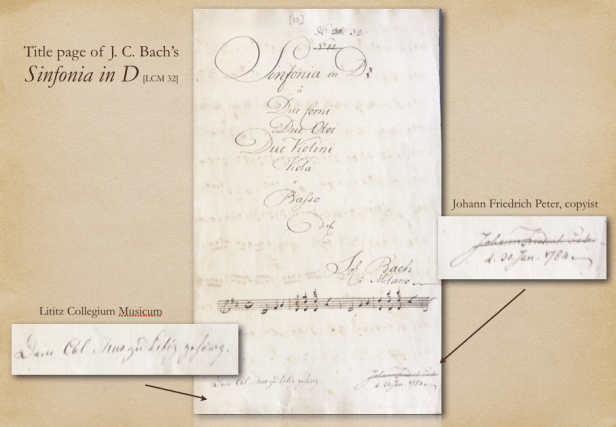 Title page of J. C. Bach's
Sinfonia in D [LCM 32]
[32]
Sinfonia in D#
à
Due Corni
Due Oboi
Due Violini
Viola
e
Basso
Del
Bach
à Milano
Johann Friedrich Peter, copyist
Johann Friedrich Peter
d. 30 Jan. 1784
Lititz Collegium Musicum
Dem Col. Mus zu Litiz gehörig.
Dem Col. Mus zu Litiz gehörig.
Johann Friedrich Peter
d. 30 Jan. 1784